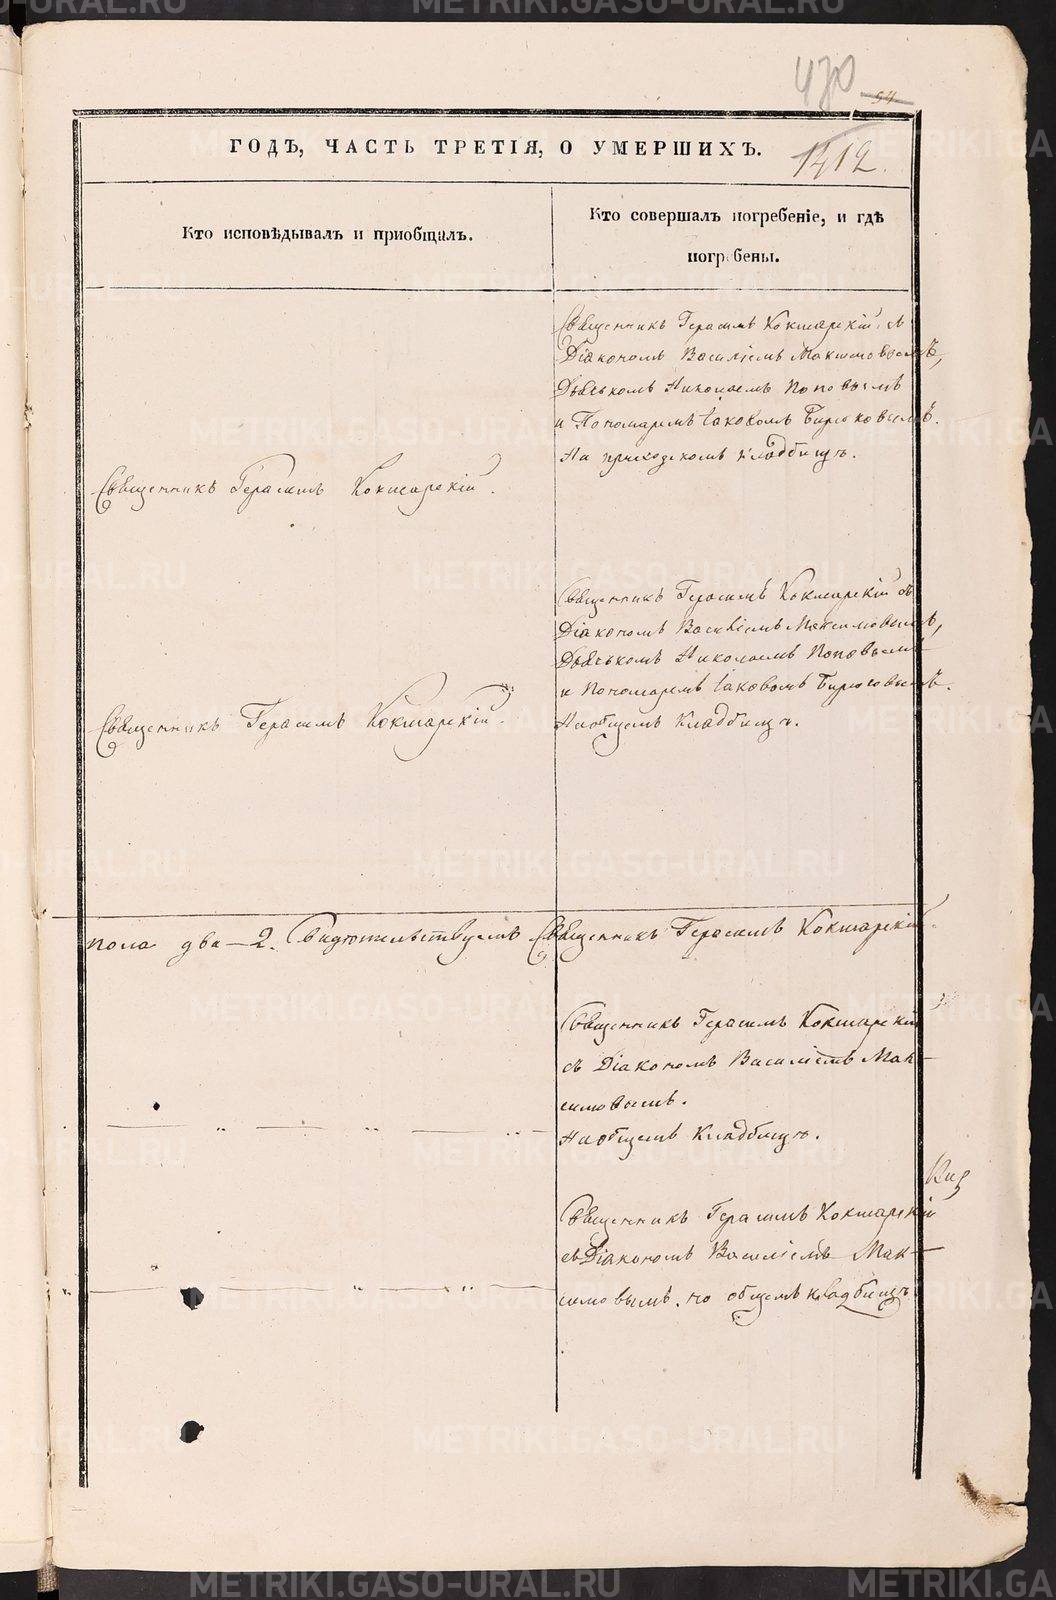 470
54
1412.
ГОДЪ, ЧАСТЬ ТРЕТІЯ, О УМЕРШИХЪ.
Кто исповѣдывалъ и приобщалъ.
Кто совершалъ погребеніе, и гдѣ
погребены.
Священникъ Герасимъ Кокшарскій съ
Діакономъ Василіемъ Максимовымъ,
Дьячкомъ Николаемъ Поповымъ
и Пономаремъ Іаковомъ Бирюковымъ.
На приходскомъ кладбищѣ.
Священникъ Герасимъ Кокшарскій.
Священникъ Герасимъ Кокшарскій съ
Діакономъ Василіемъ Максимовымъ,
Дьячкомъ Николаемъ Поповымъ
и Пономаремъ Іаковомъ Бирюковымъ.
На общемъ кладбищѣ.
Священникъ Герасимъ Кокшарскій.
пола два – 2. Свидѣтельствуетъ Священникъ Герасимъ Кокшарскій.
Священникъ Герасимъ Кокшарскій
съ Діакономъ Василіемъ Мак-
симовымъ.
На общемъ кладбищѣ.
Священникъ Герасимъ Кокшарскій
съ Діакономъ Василіемъ Мак-
симовымъ. на общемъ кладбищѣ.
METRIKI.GASO-URAL.RU